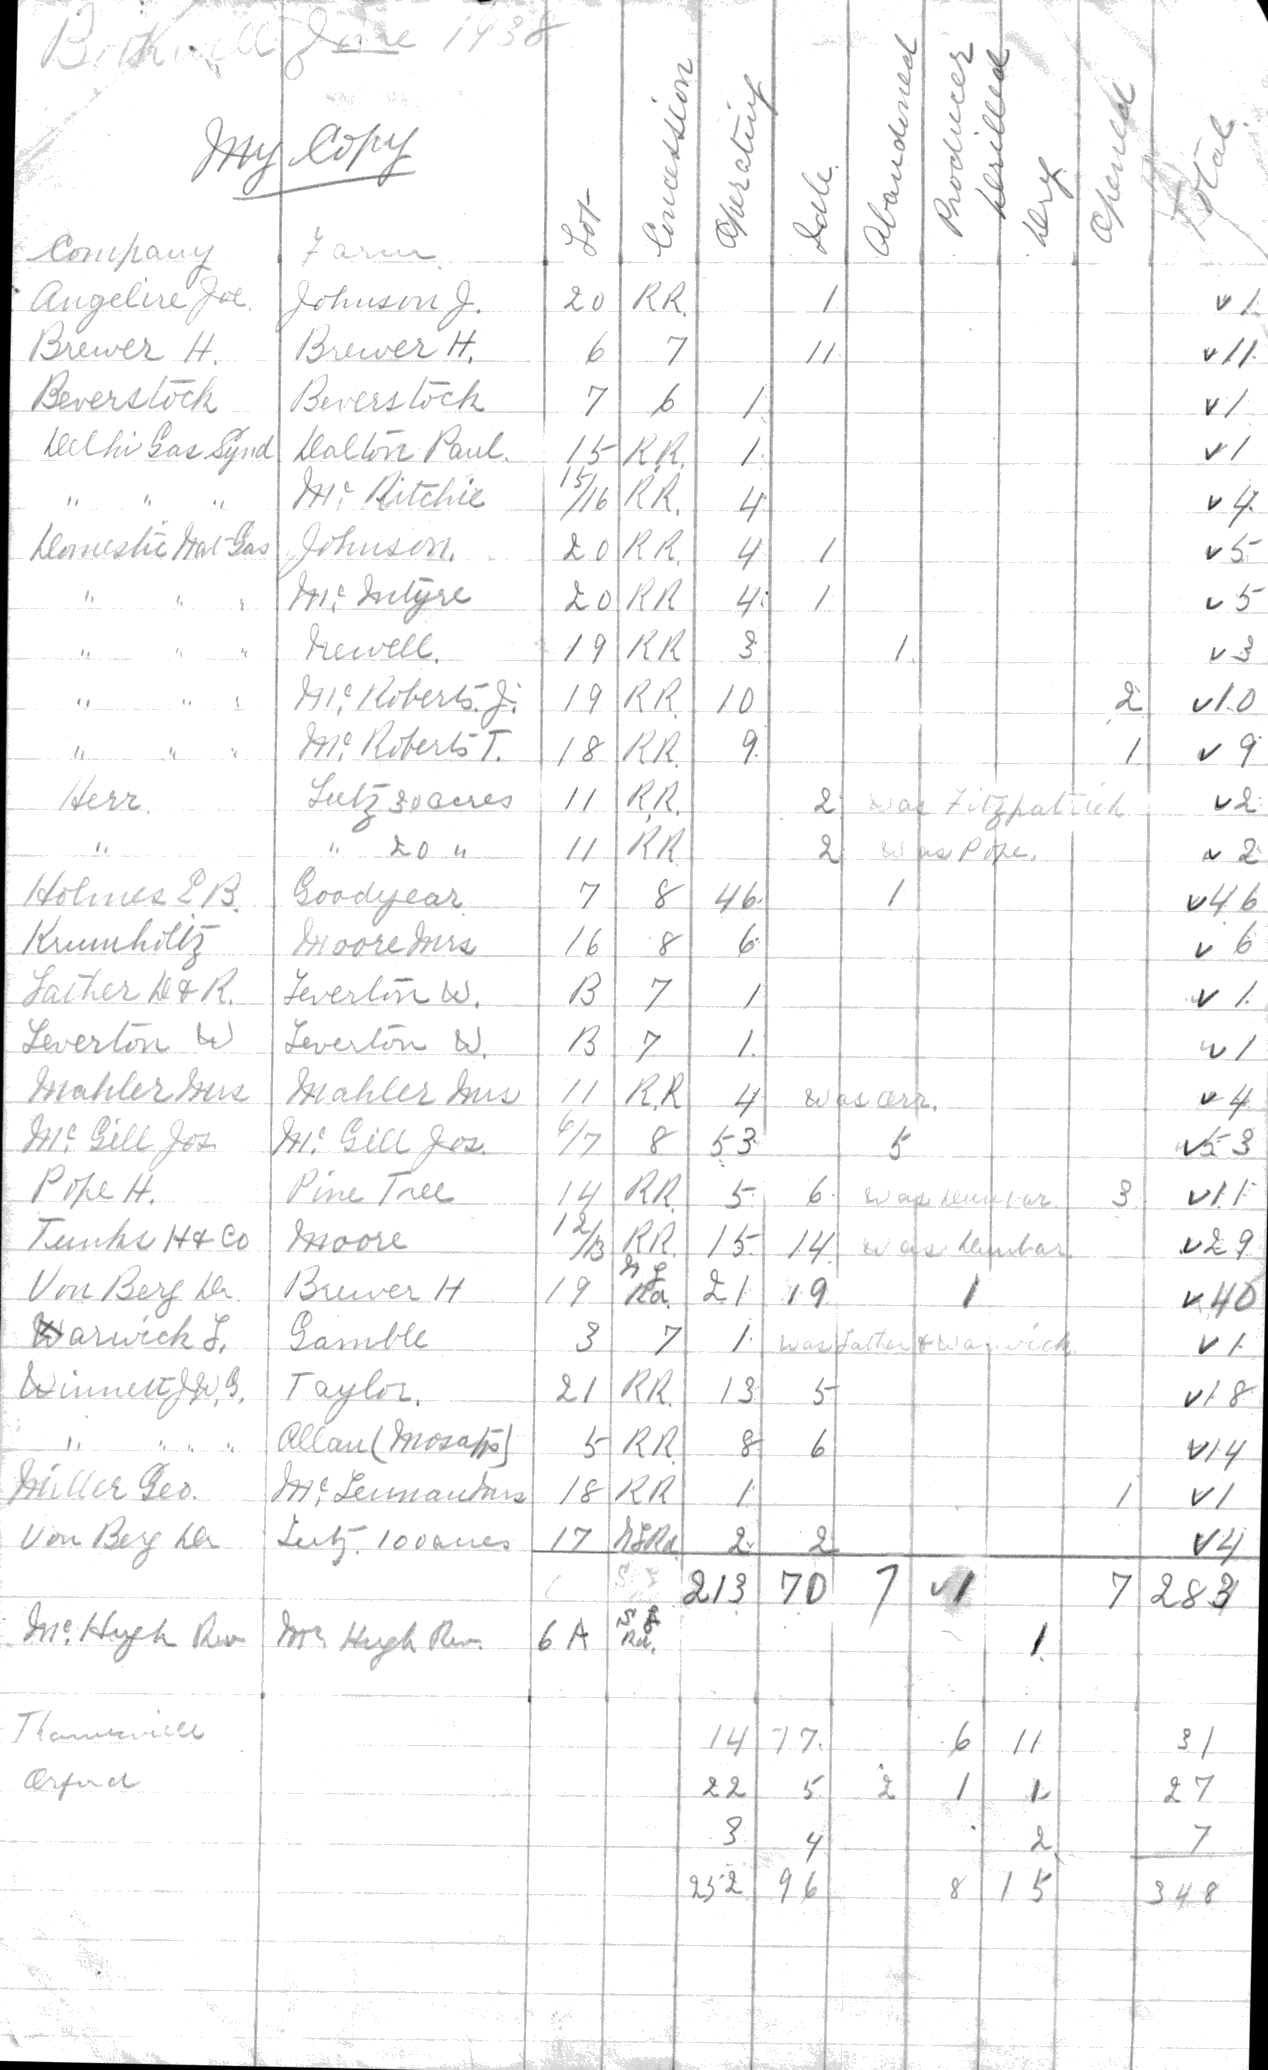 Bothwell June 1938
My Copy
Company Farm Lot Concession Operating Idle Abandoned Producer Drilled Dry Opened Total
Angeline Joe. Johnson J. 20 RR. 1 v1
Brewer H. Brewer H. 6 7 11 v11
Beverstock Beverstock 7 6 1 v1
Delhi Gas Synd Dalton Paul. 15 RR. 1 v1
" " " Mc Ritchie 15/16 RR. 4 v4
Domestic Nat Gas Johnson. 20 RR. 4 1 v5
" " " Mc Intyre 20 RR 4 1 v5
" " " Newell. 19 RR 3 1 v3
" " " Mc Roberts. J. 19 RR. 10 2 v10
" " " Mc Roberts T. 18 RR. 9 1 v9
Herr. Lutz 30 acres 11 RR. 2 was Fitzpatrick v2
" " 20 " 11 RR 2 was Pope. v2
Holmes E B. Goodyear 7 8 46 1 v46
Krumholtz Moore Mrs 16 8 6 v6
Lather D & R. Leverton W. B 7 1 v1
Leverton W Leverton W. B 7 1 v1
Mahler Mrs Mahler Mrs 11 R.R 4 was Orr. v4
Mc Gill Jos Mc Gill Jos. 6/7 8 53 5 v53
Pope H. Pine Tree 14 RR. 5 6 was Dunbar 3 v11
Tunks H & Co Moore 12/13 RR. 15 14 was Dunbar v29
Von Berg Dr. Brewer H 19 N L Rd. 21 19 1 v40
Warwick L. Gamble 3 7 1 was Lather & Warwick v1
Winnett J.W.G. Taylor. 21 RR. 13 5 v18
" " " " Allan (Mosatts) 5 RR. 8 6 v14
Miller Geo. Mc Lennan Mrs 18 RR 1 1 v1
Von Berg Dr Lutz. 100 acres 17 N L Rd. 2 2 v4
213 70 7 v1 7 283
Mc Hugh Rev Mc Hugh Rev. 6 A Rd. 1
Thamesville 14 17 6 11 31
Orford 22 5 2 1 1 27
3 4 2 7
252 96 8 15 348